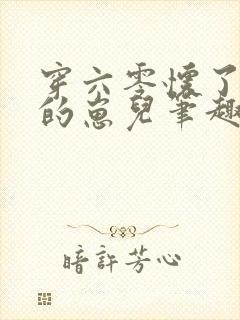 穿六零懷了
的崽兒筆趣
暗許芳心